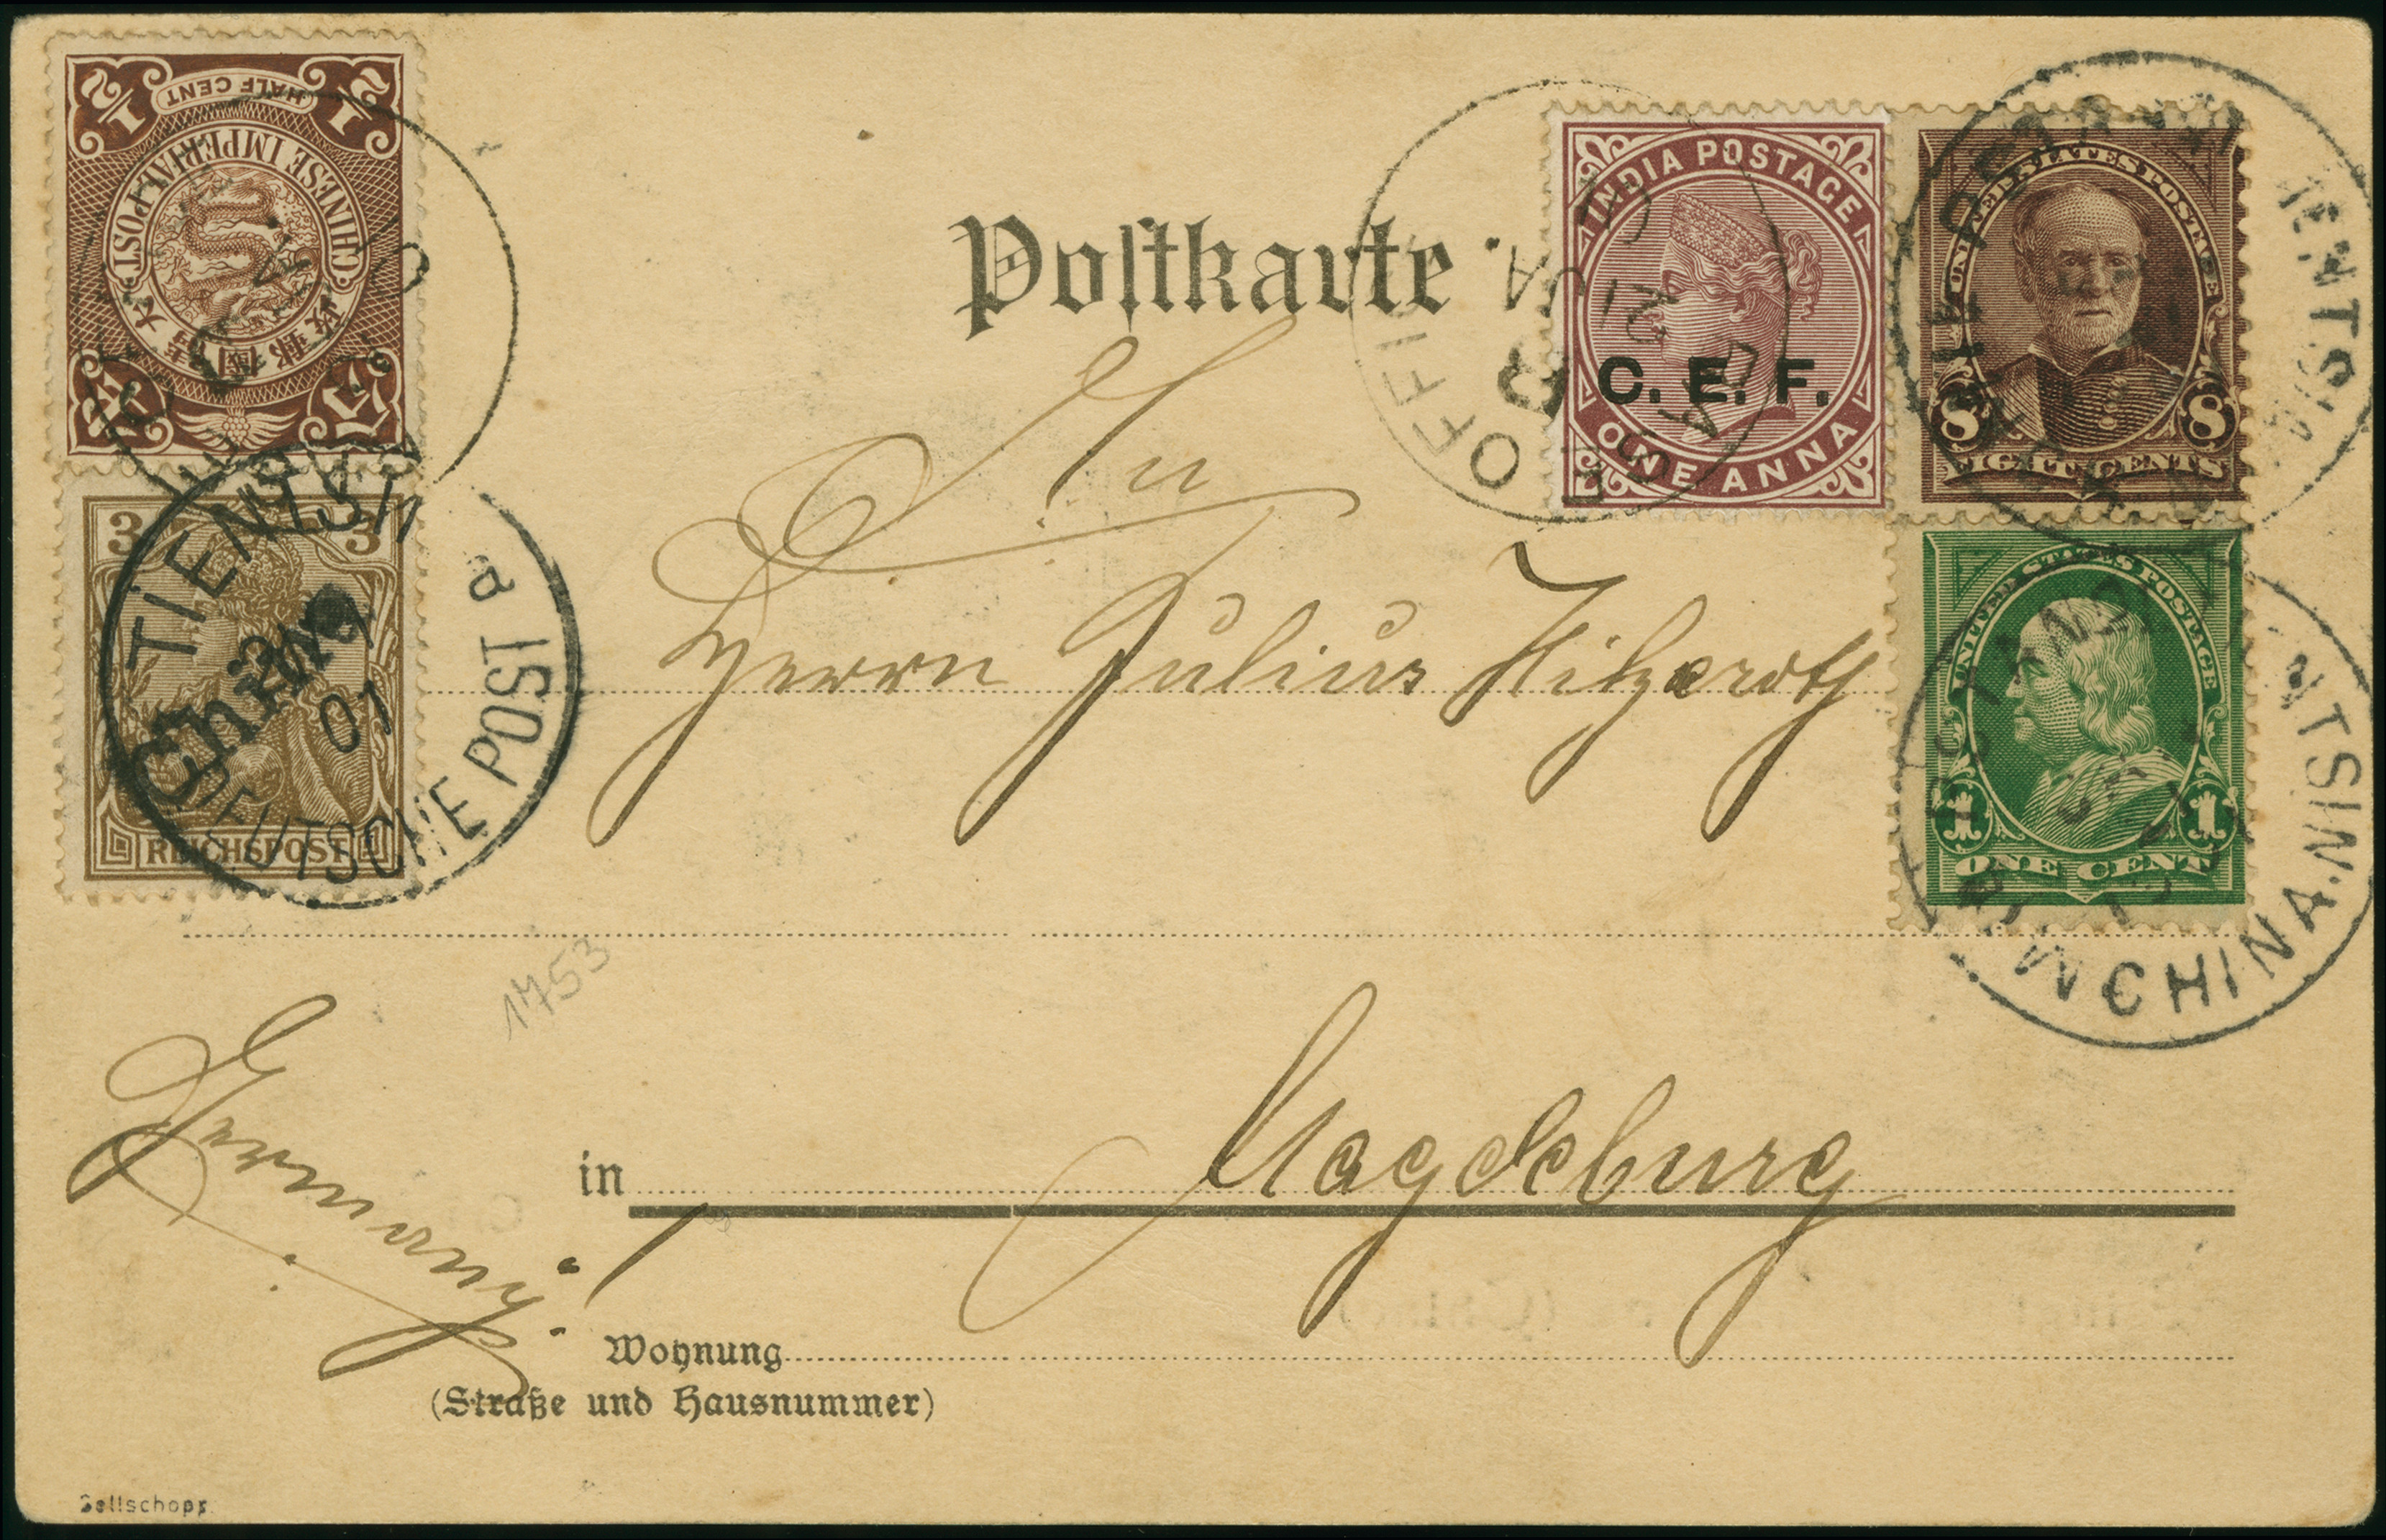 HALF CENT
CHINESE IMPERIAL POST
3 3
China
REICHSPOST
TIENTSIN
01
DEUTSCHE POST
INDIA POSTAGE
C. E. F.
ONE ANNA
UNITED STATES POSTAGE
8 8
EIGHT CENTS
UNITED STATES POSTAGE
1 1
ONE CENT
OFFICE
TIENTSIN
CHINA.
Postkarte.
An
Herrn Julius
1753
in Magdeburg
Germany.
Wohnung
(Straße und Hausnummer)
Sellschopp